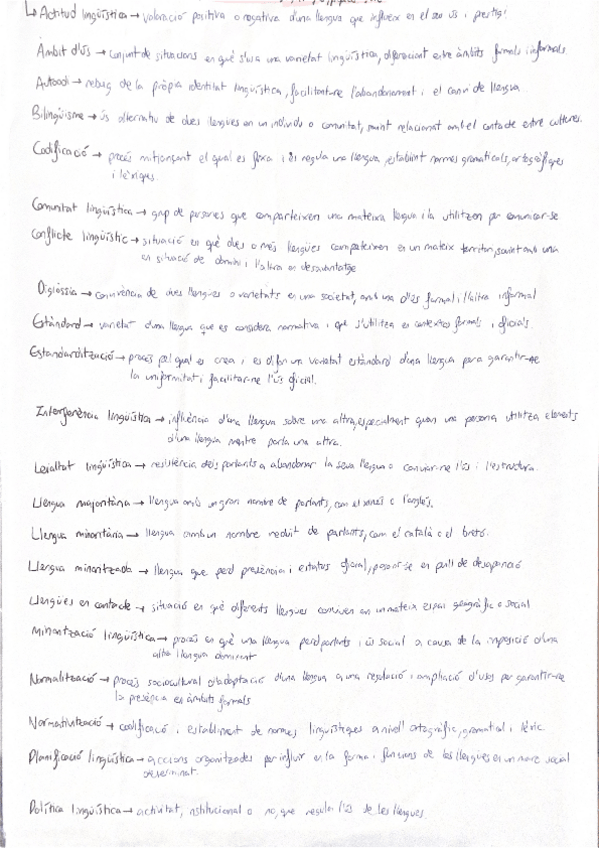 ↳ Actitud lingüística → valoració positiva o negativa d'una llengua que influeix en el seu ús i prestigi
Àmbit d'ús → conjunt de situacions en què s'usa una varietat lingüística, diferenciant entre àmbits formals i informals.
Autoodi → rebuig de la pròpia identitat lingüística, facilitant-ne l'abandonament i el canvi de llengua.
Bilingüisme → ús alternatiu de dues llengües en un individu o comunitat, sovint relacionat amb el contacte entre cultures.
Codificació → procés mitjançant el qual es fixa i es regula una llengua, establint normes gramaticals, ortogràfiques
i lèxiques.
Comunitat lingüística → grup de persones que comparteixen una mateixa llengua i la utilitzen per comunicar-se
Conflicte lingüístic → situació en què dues o més llengües competeixen en un mateix territori, sovint amb una
en situació de domini i l'altra en desavantatge
Diglòssia → convivència de dues llengües o varietats en una societat, amb una d'ús formal i l'altra informal
Estàndard → varietat d'una llengua que es considera normativa i que s'utilitza en contextos formals i oficials.
Estandardització → procés pel qual es crea i es difon una varietat estàndard d'una llengua per a garantir-ne
la uniformitat i facilitar-ne l'ús oficial.
Interferència lingüística → influència d'una llengua sobre una altra, especialment quan una persona utilitza elements
d'una llengua mentre parla una altra.
Lleialtat lingüística → resistència dels parlants a abandonar la seva llengua o canviar-ne l'ús i l'estructura.
Llengua majoritària → llengua amb un gran nombre de parlants, com el xinès o l'anglès.
Llengua minoritària → llengua amb un nombre reduït de parlants, com el català o el bretó.
Llengua minoritzada → llengua que perd presència i estatus oficial, posant-se en perill de desaparició
Llengües en contacte → situació en què diferents llengües conviuen en un mateix espai geogràfic o social
Minorització lingüística → procés en què una llengua perd parlants i ús social a causa de la imposició d'una
altra llengua dominant
Normalització → procés sociocultural d'adaptació d'una llengua a una regulació i ampliació d'usos per garantir-ne
la presència en àmbits formals
Normativització → codificació i establiment de normes lingüístiques a nivell ortogràfic, gramatical i lèxic.
Planificació lingüística → accions organitzades per influir en la forma i funcions de les llengües en un marc social
determinat.
Política lingüística → activitat, institucional o no, que regula l'ús de les llengües.